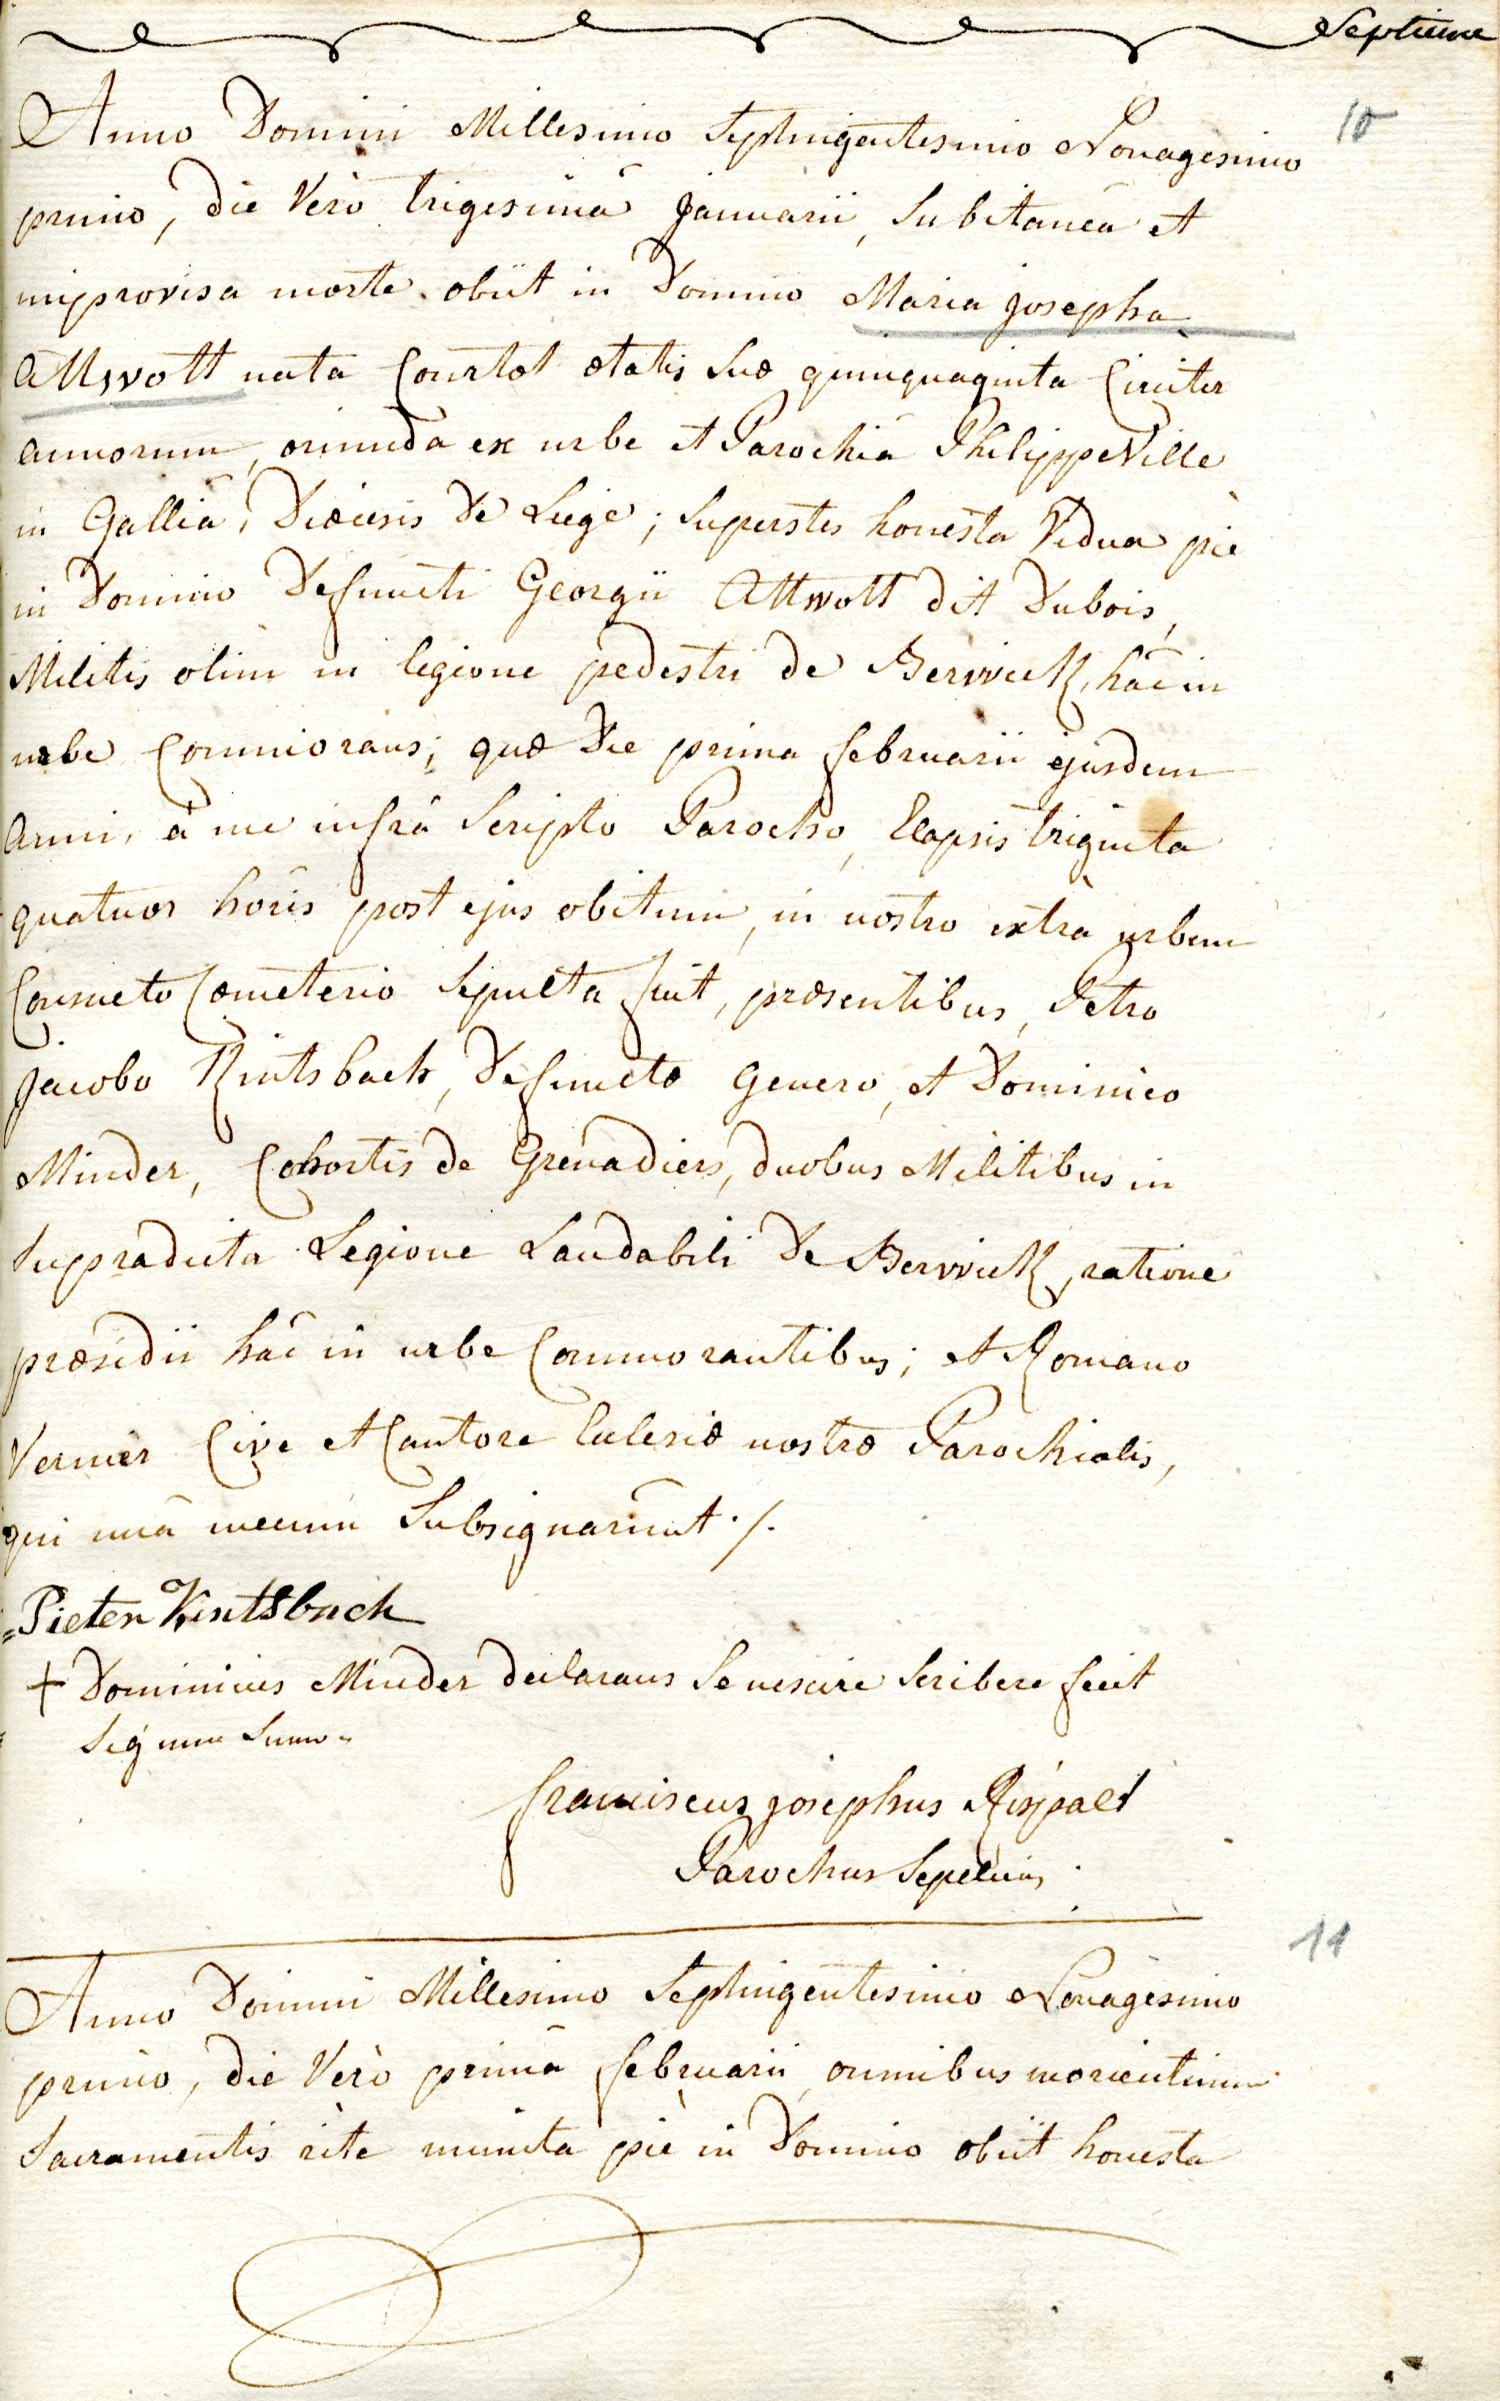 Septieme
10
Anno Domini Millesimo Septingentesimo Nonagesimo
primo, die Verò trigesimâ Januarii, Subitaneâ et
improvisa morte obiit in Domino Maria Josepha
Attwott nata Courtot ætatis Suæ quinquaginta Circiter
annorum, oriunda ex urbe et Parochiâ PhilippeVille
in Galliâ, Diœcesis De Liege; Superstes honesta Vidua piè
in Domino Defuncti Georgii Attwott dit Dubois,
Militis olim in legione pedestri de Berwick, hâc in
urbe Commorans; quæ Die prima februarii ejusdem
Anni, à me infrà Scripto Parocho, Elapsis triginta
quatuor horis post ejus obitum, in nostro extrà urbem
Consueto Cœmeterio Sepulta fuit, præsentibus, Petro
Jacobo Kintsbach, Defunctæ genero, et Dominico
Minder, Cohortis de Grenadiers, duobus Militibus in
Supradicta Legione Laudabili De Berwick, ratione
præsidii hâc in urbe Commorantibus; et Romano
Vernier Cive et Cantore Ecclesiæ nostræ Parochialis,
qui unâ mecum Subsignarunt ./.
Pieter Kintsbach
+ Dominicus Minder declarans Se nescire Scribere fecit
Signum Suum
franciscus josephus Rispalt
Parochus Sepeliens
11
Anno Domini Millesimo Septingentesimo Nonagesimo
primo, die Verò primâ februarii, omnibus morientium
Sacramentis rite munita piè in Domino obiit honesta